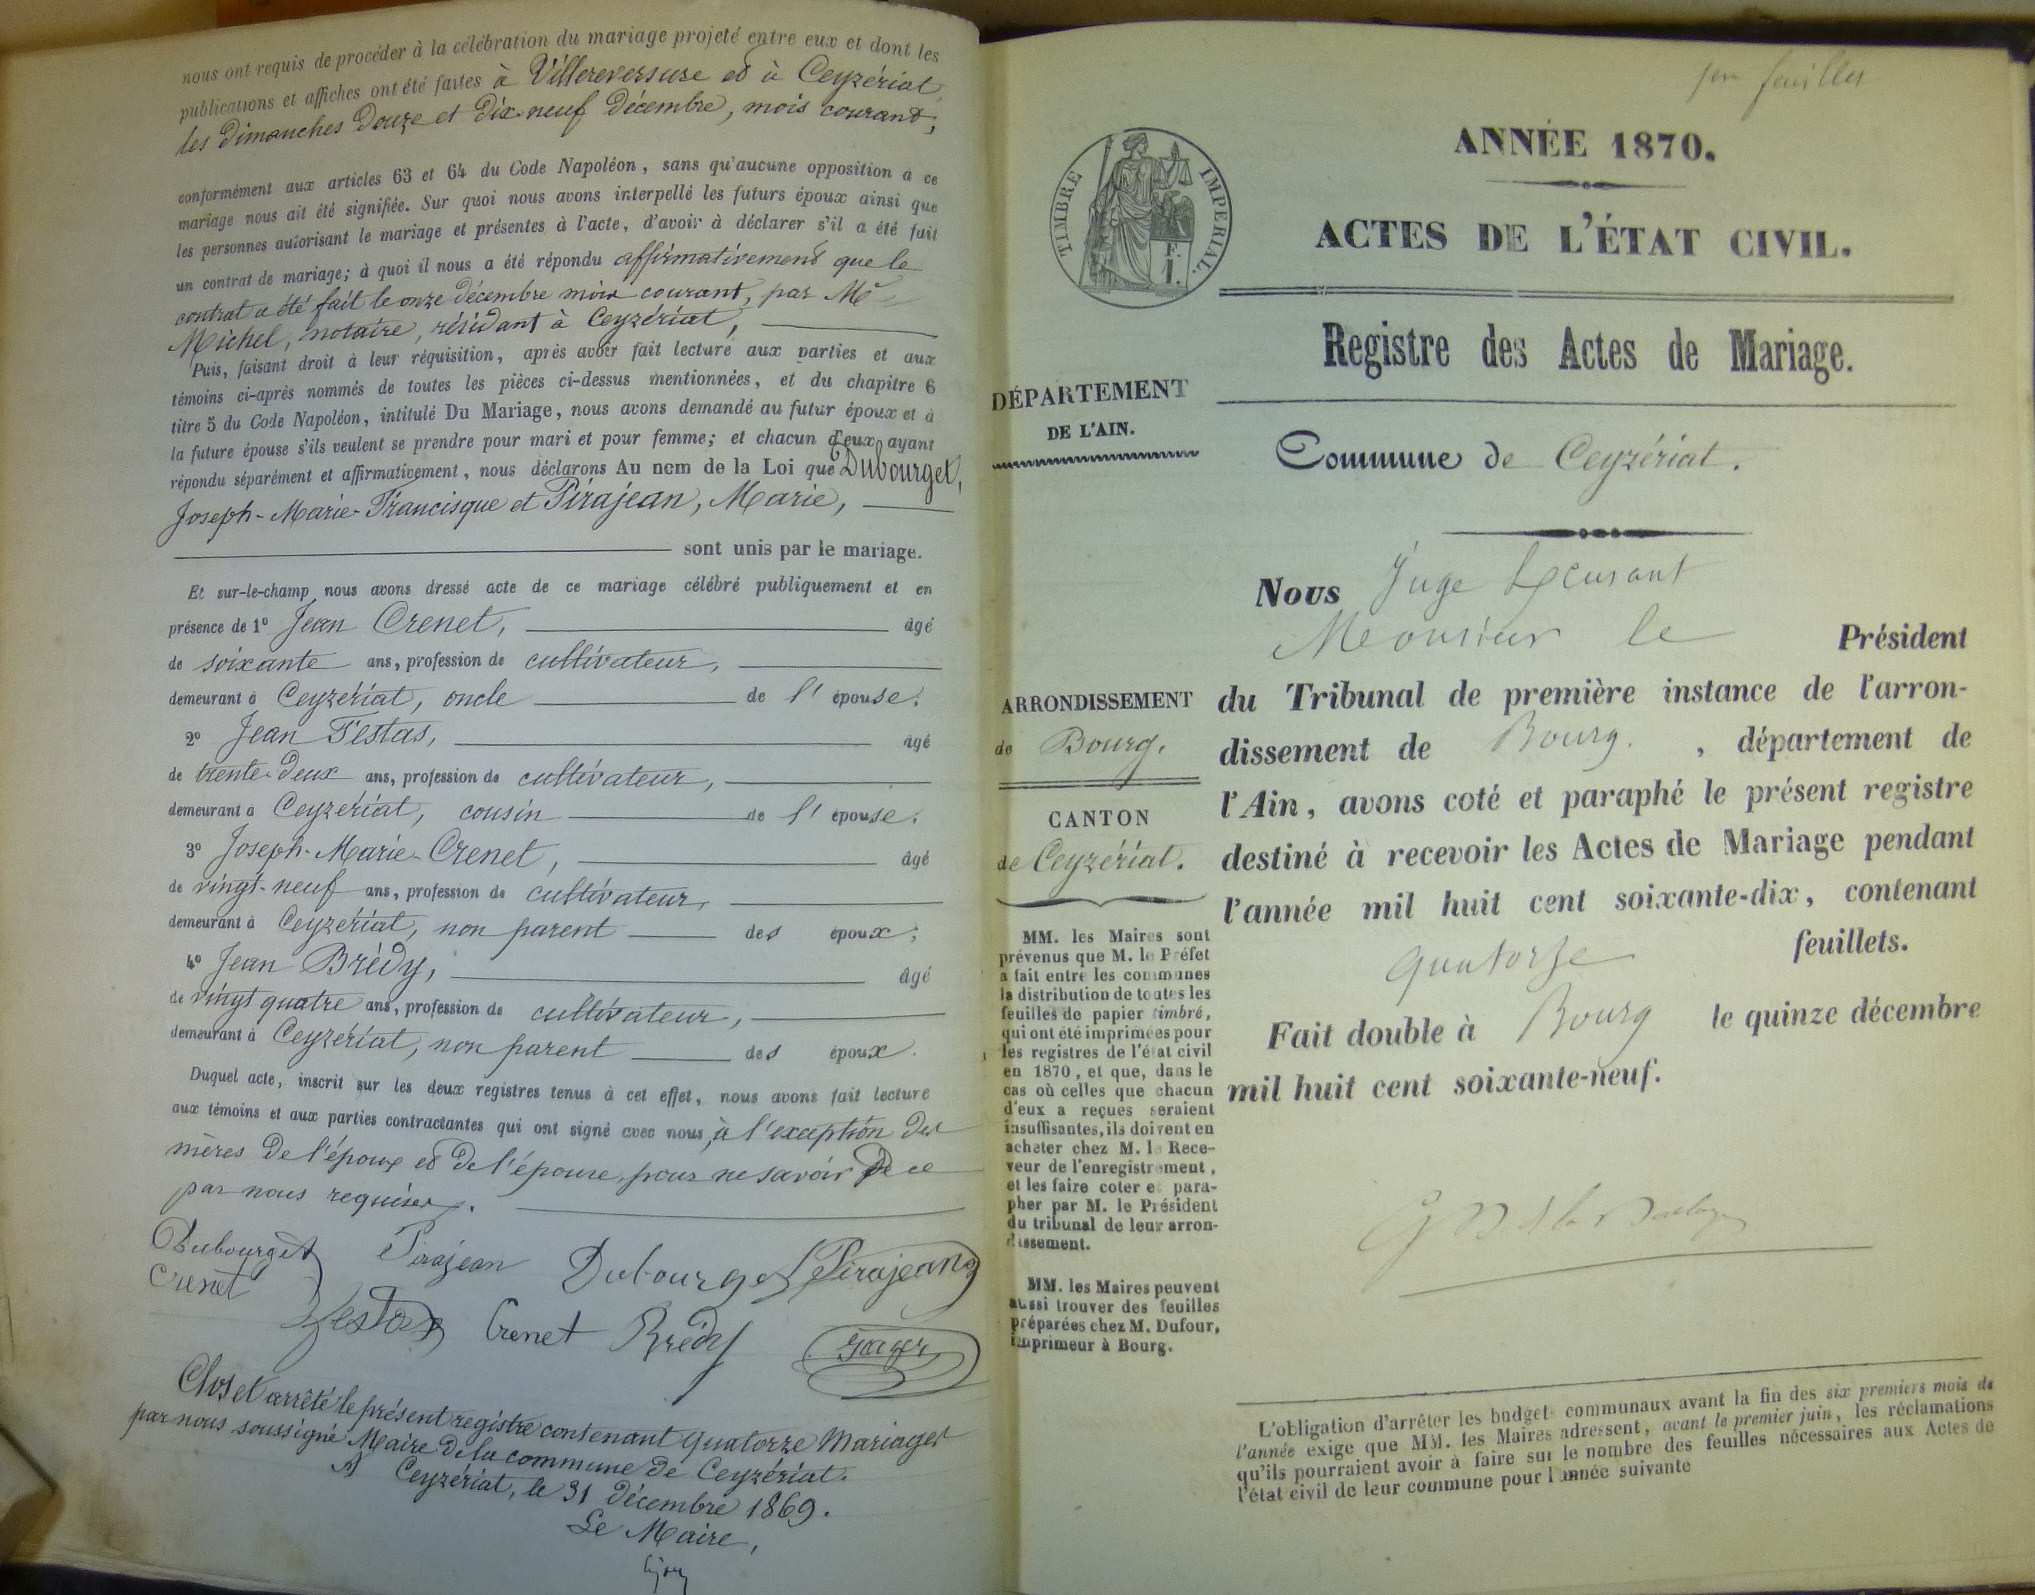 nous ont requis de procéder à la célébration du mariage projeté entre eux et dont les
publications et affiches ont été faites à Villereversure et à Ceyzériat,
les Dimanches Douze et Dix-neuf Décembre, mois courant,
conformément aux articles 63 et 64 du Code Napoléon, sans qu'aucune opposition à ce
mariage nous ait été signifiée. Sur quoi nous avons interpellé les futurs époux ainsi que
les personnes autorisant le mariage et présentes à l'acte, d'avoir à déclarer s'il a été fait
un contrat de mariage; à quoi il nous a été répondu affirmativement que le
contrat a été fait le onze Décembre mois courant, par Me
Michel, notaire, résidant à Ceyzériat,
Puis, faisant droit à leur réquisition, après avoir fait lecture aux parties et aux
témoins ci-après nommés de toutes les pièces ci-dessus mentionnées, et du chapitre 6
titre 5 du Code Napoléon, intitulé Du Mariage, nous avons demandé au futur époux et à
la future épouse s'ils veulent se prendre pour mari et pour femme; et chacun d'eux ayant
répondu séparément et affirmativement, nous déclarons Au nom de la Loi que Dubourget,
Joseph-Marie-Francisque et Pirajean, Marie,
sont unis par le mariage.
Et sur-le-champ nous avons dressé acte de ce mariage célébré publiquement et en
présence de 1º Jean Crenet, âgé
de soixante ans, profession de cultivateur,
demeurant à Ceyzériat, oncle de l'épouse;
2º Jean Festas, âgé
de trente-Deux ans, profession de cultivateur,
demeurant à Ceyzériat, cousin de l'épouse;
3º Joseph-Marie Crenet, âgé
de vingt-neuf ans, profession de cultivateur,
demeurant à Ceyzériat, non parent des époux;
4º Jean Brédy, âgé
de vingt quatre ans, profession de cultivateur,
demeurant à Ceyzériat, non parent des époux.
Duquel acte, inscrit sur les deux registres tenus à cet effet, nous avons fait lecture
aux témoins et aux parties contractantes qui ont signé avec nous, à l'exception des
mères de l'époux et de l'épouse, pour ne savoir de ce
par nous requises.
Dubourget Pirajean Dubourget Pirajean
Crenet
Festas Crenet Brédy
Clos et arrêté le présent registre contenant quatorze Mariages
par nous soussigné Maire de la commune de Ceyzériat.
A Ceyzériat, le 31 décembre 1869.
Le Maire,
feuillet
ANNÉE 1870.
ACTES DE L'ÉTAT CIVIL.
TIMBRE IMPERIAL.
F.
1.
Registre des Actes de Mariage.
DÉPARTEMENT
DE L'AIN.
Commune de Ceyzériat.
ARRONDISSEMENT
de Bourg.
CANTON
de Ceyzériat.
MM. les Maires sont
prévenus que M. le Préfet
a fait entre les communes
la distribution de toutes les
feuilles de papier timbré,
qui ont été imprimées pour
les registres de l'état civil
en 1870, et que, dans le
cas où celles que chacun
d'eux a reçues seraient
insuffisantes, ils doivent en
acheter chez M. le Rece-
veur de l'enregistrement,
et les faire coter et para-
pher par M. le Président
du tribunal de leur arron-
dissement.
MM. les Maires peuvent
aussi trouver des feuilles
préparées chez M. Dufour,
imprimeur à Bourg.
Nous Juge
Monsieur le Président
du Tribunal de première instance de l'arron-
dissement de Bourg, département de
l'Ain, avons coté et paraphé le présent registre
destiné à recevoir les Actes de Mariage pendant
l'année mil huit cent soixante-dix, contenant
quatorze feuillets.
Fait double à Bourg le quinze décembre
mil huit cent soixante-neuf.
L'obligation d'arrêter les budgets communaux avant la fin des six premiers mois de
l'année exige que MM. les Maires adressent, avant le premier juin, les réclamations
qu'ils pourraient avoir à faire sur le nombre des feuilles nécessaires aux Actes de
l'état civil de leur commune pour l'année suivante